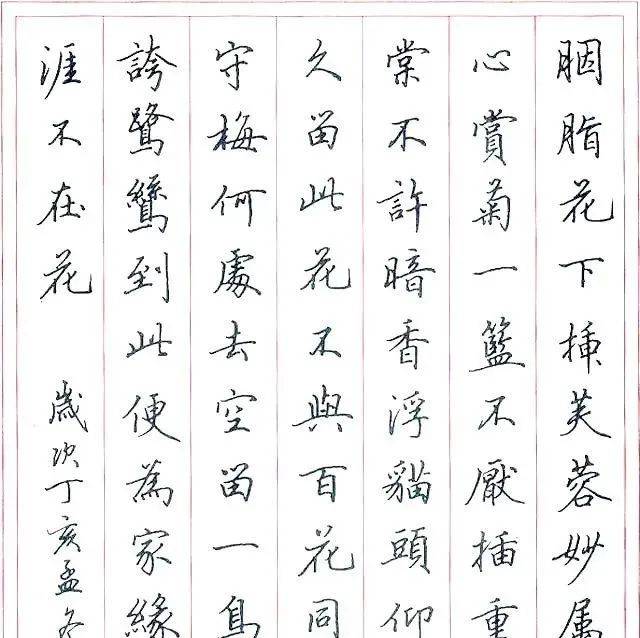 胭脂花下捶芙蓉妙属
心賞菊一籃不厭插重
棠不許暗香浮貓頭仰
久留此花不與百花同
守梅何處去空留一鳥
誇鷺鷥到此便為家緣
涯不在花 歲次丁亥孟冬